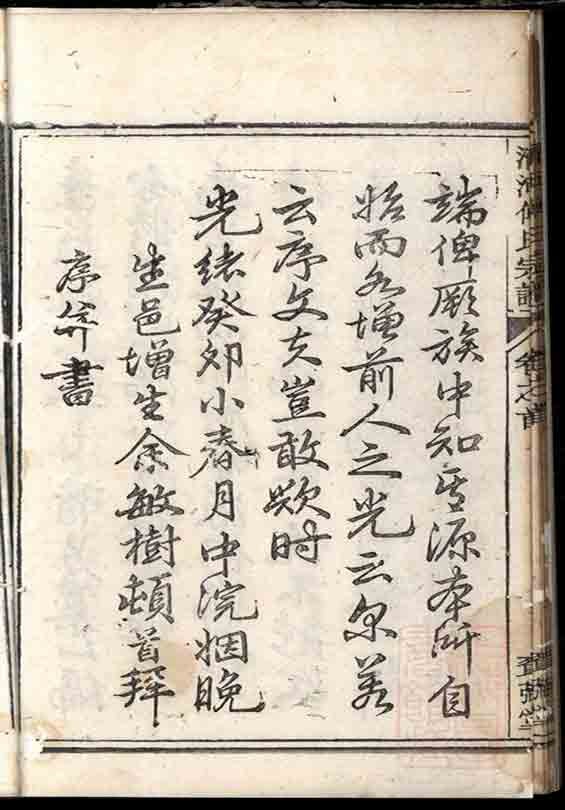 端俾厥族中知其源本所自
始而為增前人之光云尔若
云序文夫豈敢歟時
光緒癸卯小春月中浣姻晚
生邑增生余敏樹頓首拜
序并書
氏宗譜
卷之首
堂